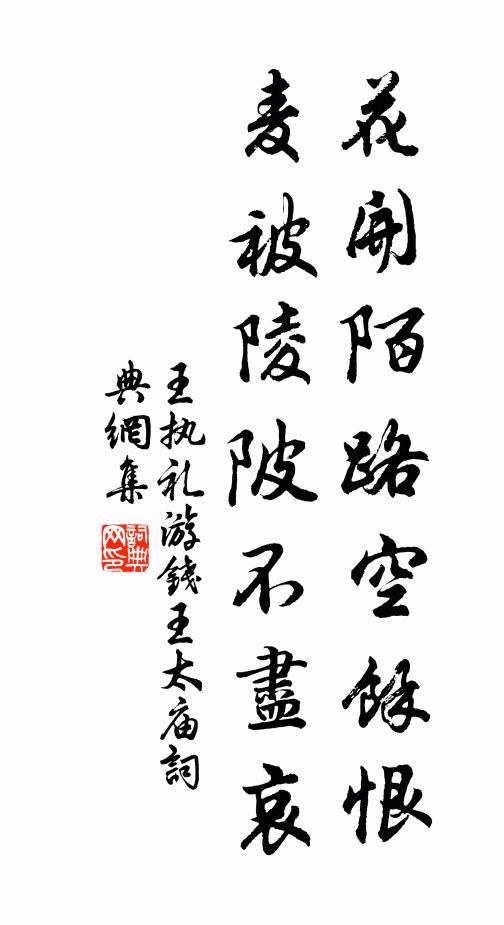 花開陌路空餘恨
麦被陵陂不盡哀
王执礼游錢王太庙詞
典網集
詞典
网印